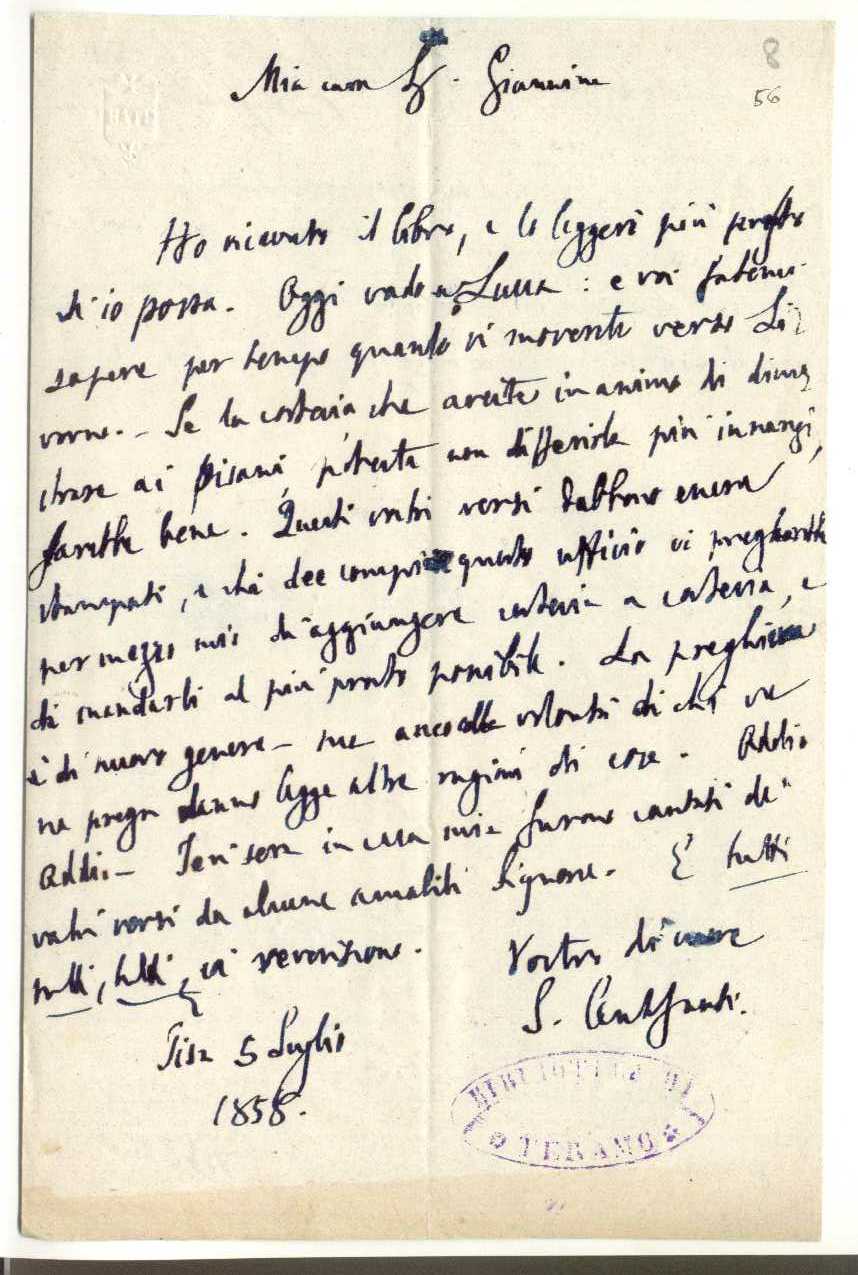 8
56
Mia cara Sig. Giannina
Ho ricevuto il libro, e lo leggerò più presto
ch'io possa. Oggi vado a Lucca: e voi fatemi
sapere per tempo quando vi moverete verso Li
vorno. - Se la cortesia che avete in animo di dimo
strare ai Pisani, poteste non differirla più innanzi,
sarebbe bene. Questi vostri versi debbono essere
stampati, e chi dee compire questo ufficio vi pregherebbe
per mezzo mio di aggiungere cortesia a cortesia, e
di mandarli al più presto possibile. La preghiera
è di nuovo genere - ma anco alle volontà di chi ve
ne prega danno legge altre ragioni di cose. Addio
Addio - Ieri sera in casa mia furono cantati de'
vostri versi da alcune amabili Signore. E tutti
tutti, tutti, vi reveriscono.
Vostro di cuore
S. Centofanti.
Pisa 5 Luglio
1858.
BIBLIOTECA DI
TERAMO